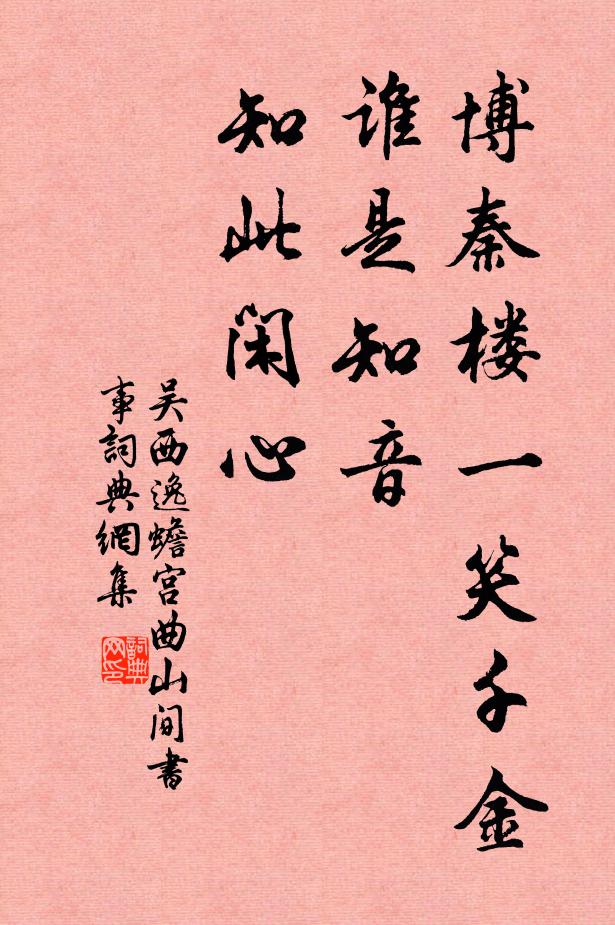 博秦楼一笑千金
谁是知音
知此闲心
吴西逸蟾宫曲山间书
事詞典網集
詞典网印